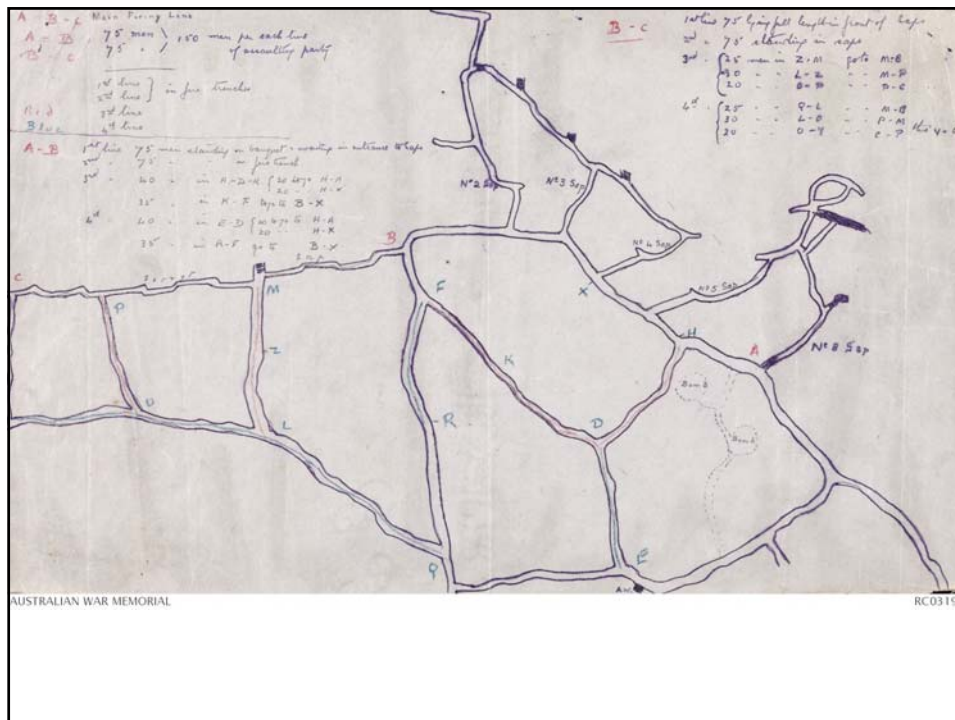 A - B - C Main Firing Line
A - B . 75 men } 150 men per each line
B - C 75 " } of assaulting party
1st line } in fire trenches
2nd line }
Red 3rd line
Blue 4th line
A - B 1st line 75 men standing on banquet waiting in entrance to saps
2nd 75 " in fire trench
3rd 40 " in H-D-K { 20 to go H-A
20 " H-X
35 " in K-F to go to B-X
4th 40 " in E-D { 20 to go to H-A
20 " H-X
35 " in R-F go to B-X
B - C
1st line 75 lying full length in front of saps
2nd " 75 standing in saps
3rd { 25 men in Z-M go to M-B
30 " L-Z " M-P
20 " O-P " P-C
4th { 25 " Q-L " M-B
30 " L-O " P-M
20 " O-Y " C-P
No 2 Sap
No 3 Sap
No 4 Sap
No 5 Sap
No 8 Sap
Sap
B
C
M
F
X
H
A
P
Z
K
O
L
R
D
Bomb
Bomb
Q
E
AUSTRALIAN WAR MEMORIAL
RC0319